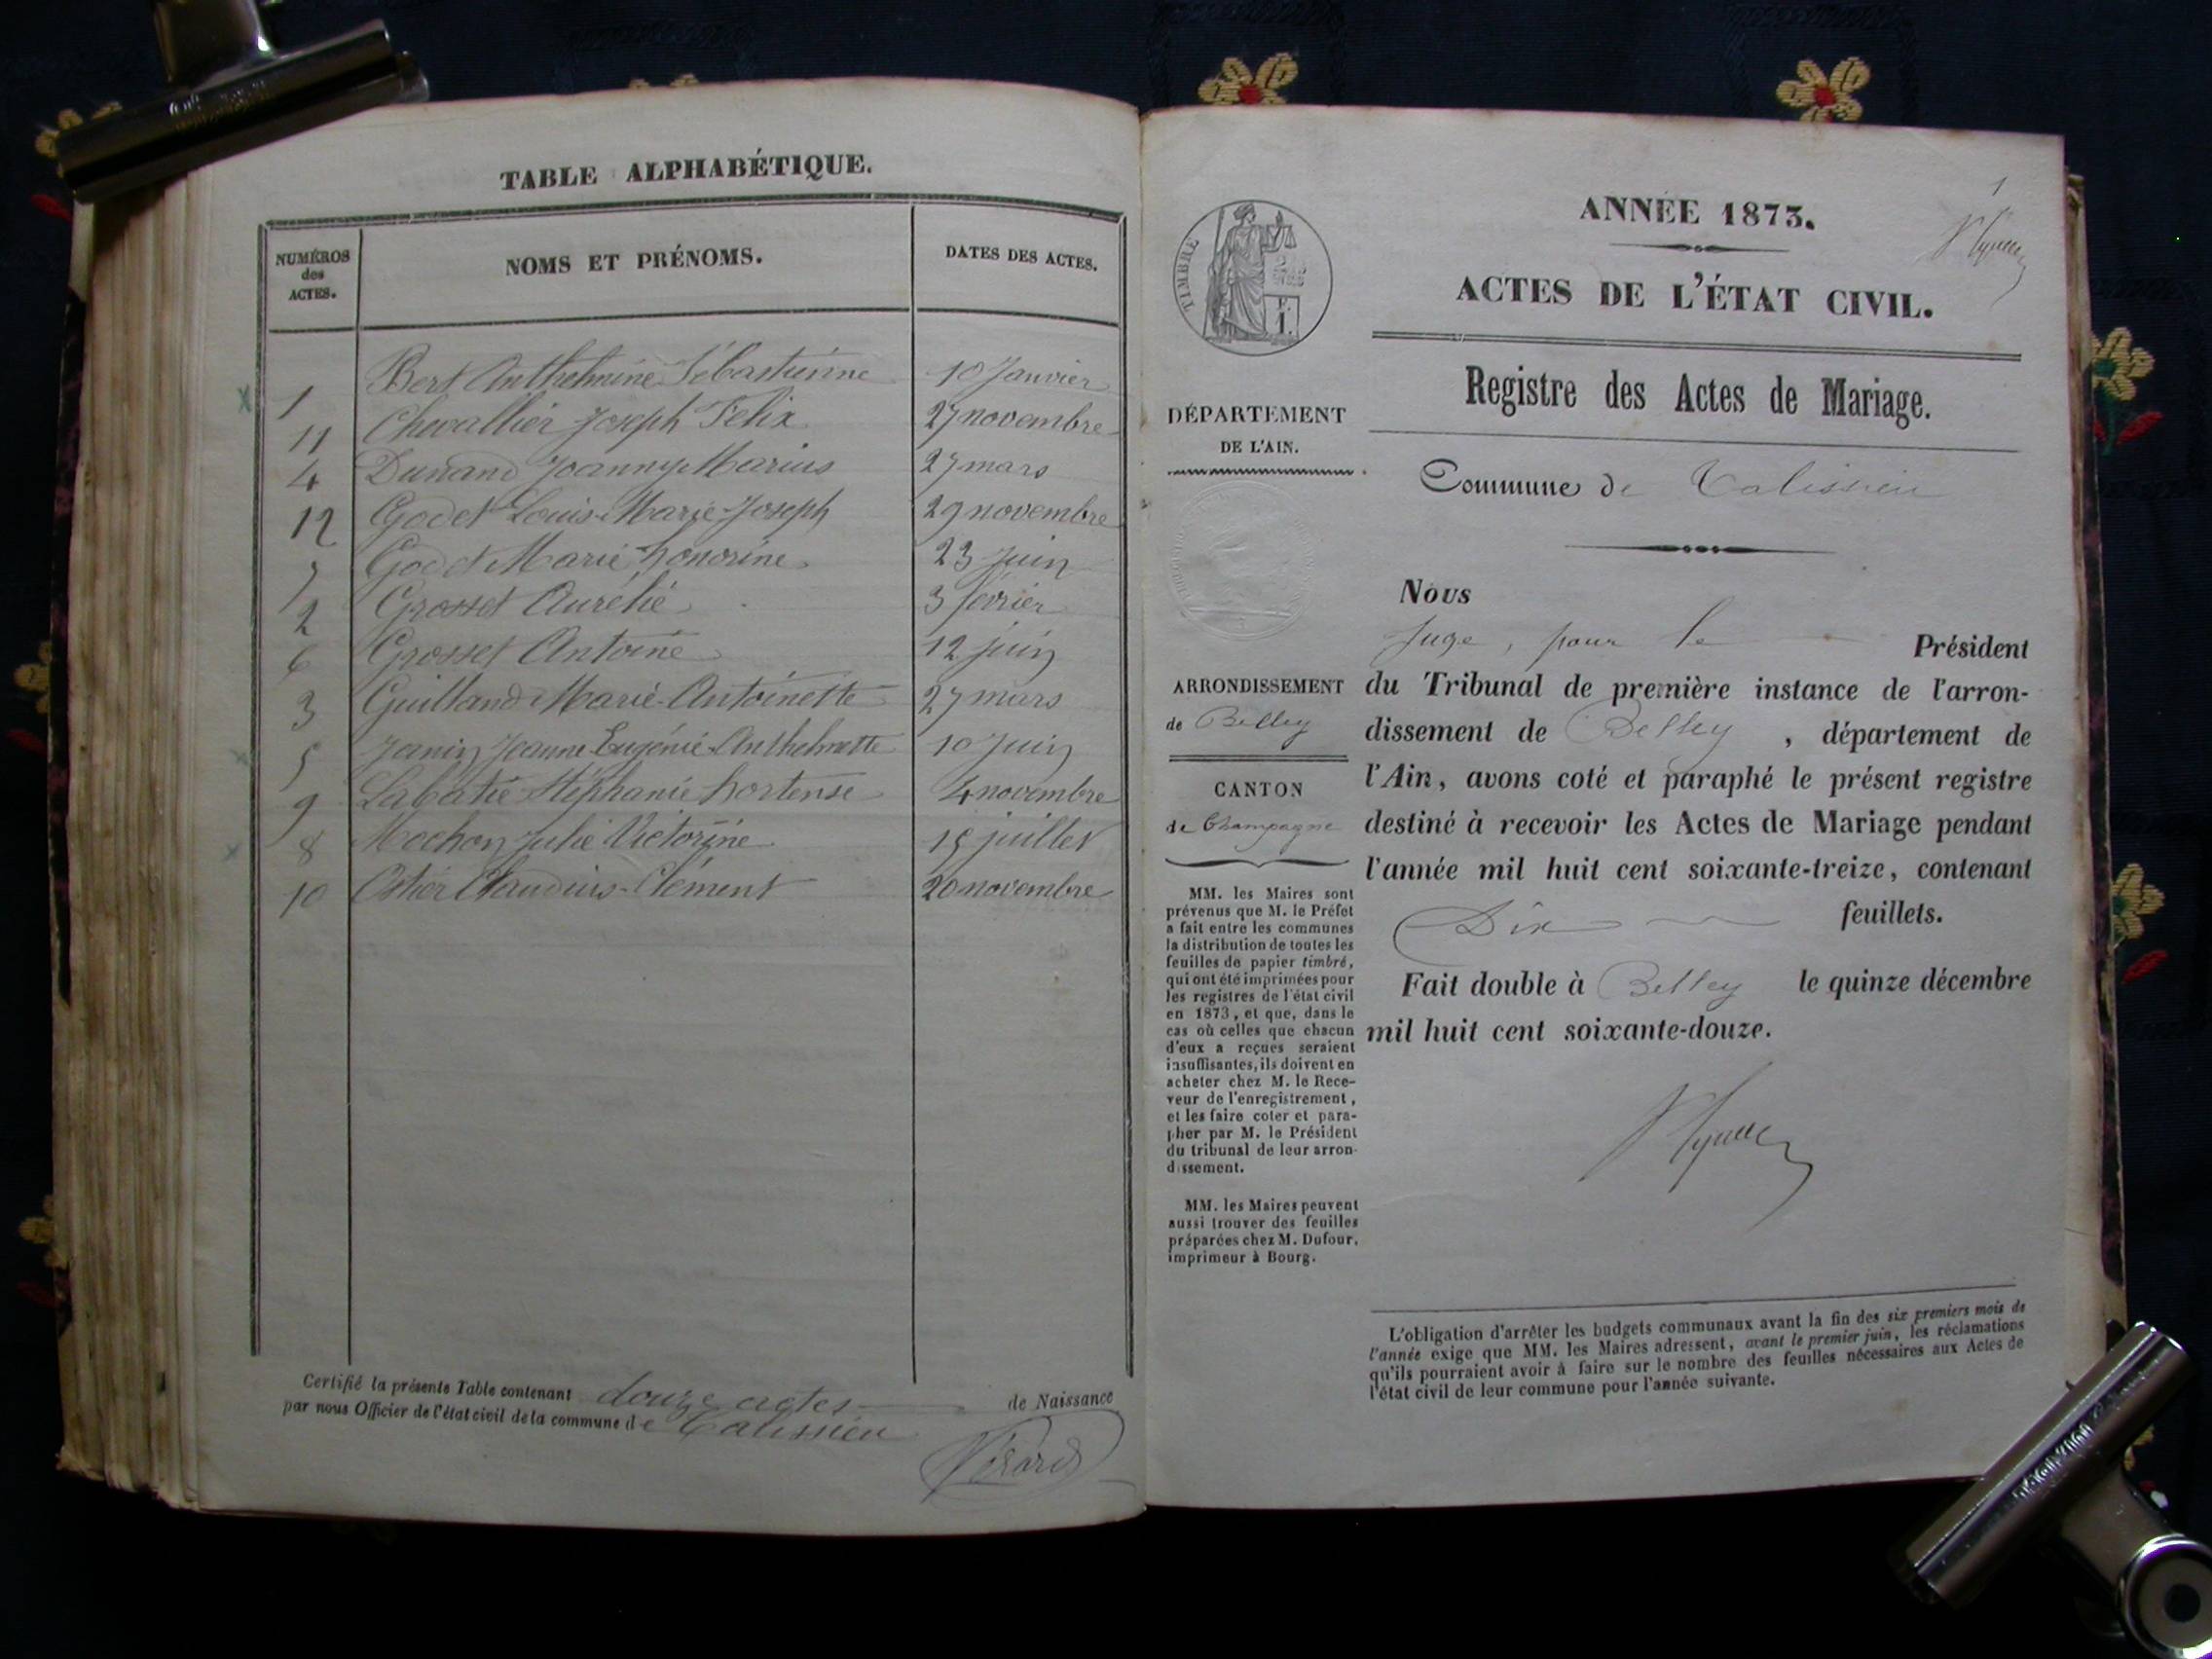 TABLE ALPHABÉTIQUE.
NUMÉROS des ACTES. NOMS ET PRÉNOMS. DATES DES ACTES.
1 Bert Anthelmine Sébastienne 10 Janvier
11 Chevallier Joseph Felix 27 novembre
4 Dunand Joanny Marius 27 mars
12 Godet Louis-Marie-Joseph 29 novembre
7 Godet Marie honorine 23 Juin
2 Grosset Aurélie 3 février
6 Grosset Antoine 12 juin
3 Guilland Marie-Antoinette 27 mars
5 Janin Jeanne Eugénie Anthelmette 10 Juin
9 Labatie Stéphanie hortense 4 novembre
8 Mochon Julie Victorine 15 juillet
10 Ostier Claudius-Clément 20 novembre
Certifié la présente Table contenant douze actes de Naissance
par nous Officier de l'état civil de la commune de Talissieu
1
TIMBRE
ANNÉE 1873.
ACTES DE L'ÉTAT CIVIL.
Registre des Actes de Mariage.
DÉPARTEMENT
DE L'AIN.
Commune de Talissieu
ARRONDISSEMENT
de Belley
CANTON
de Champagne
MM. les Maires sont
prévenus que M. le Préfet
a fait entre les communes
la distribution de toutes les
feuilles de papier timbré,
qui ont été imprimées pour
les registres de l'état civil
en 1873, et que, dans le
cas où celles que chacun
d'eux a reçues seraient
insuffisantes, ils doivent en
acheter chez M. le Rece-
veur de l'enregistrement,
et les faire coter et para-
pher par M. le Président
du tribunal de leur arron-
dissement.
MM. les Maires peuvent
aussi trouver des feuilles
préparées chez M. Dufour,
imprimeur à Bourg.
Nous
Juge, pour le Président
du Tribunal de première instance de l'arron-
dissement de Belley, département de
l'Ain, avons coté et paraphé le présent registre
destiné à recevoir les Actes de Mariage pendant
l'année mil huit cent soixante-treize, contenant
Dix feuillets.
Fait double à Belley le quinze décembre
mil huit cent soixante-douze.
L'obligation d'arrêter les budgets communaux avant la fin des six premiers mois de
l'année exige que MM. les Maires adressent, avant le premier juin, les réclamations
qu'ils pourraient avoir à faire sur le nombre des feuilles nécessaires aux Actes de
l'état civil de leur commune pour l'année suivante.